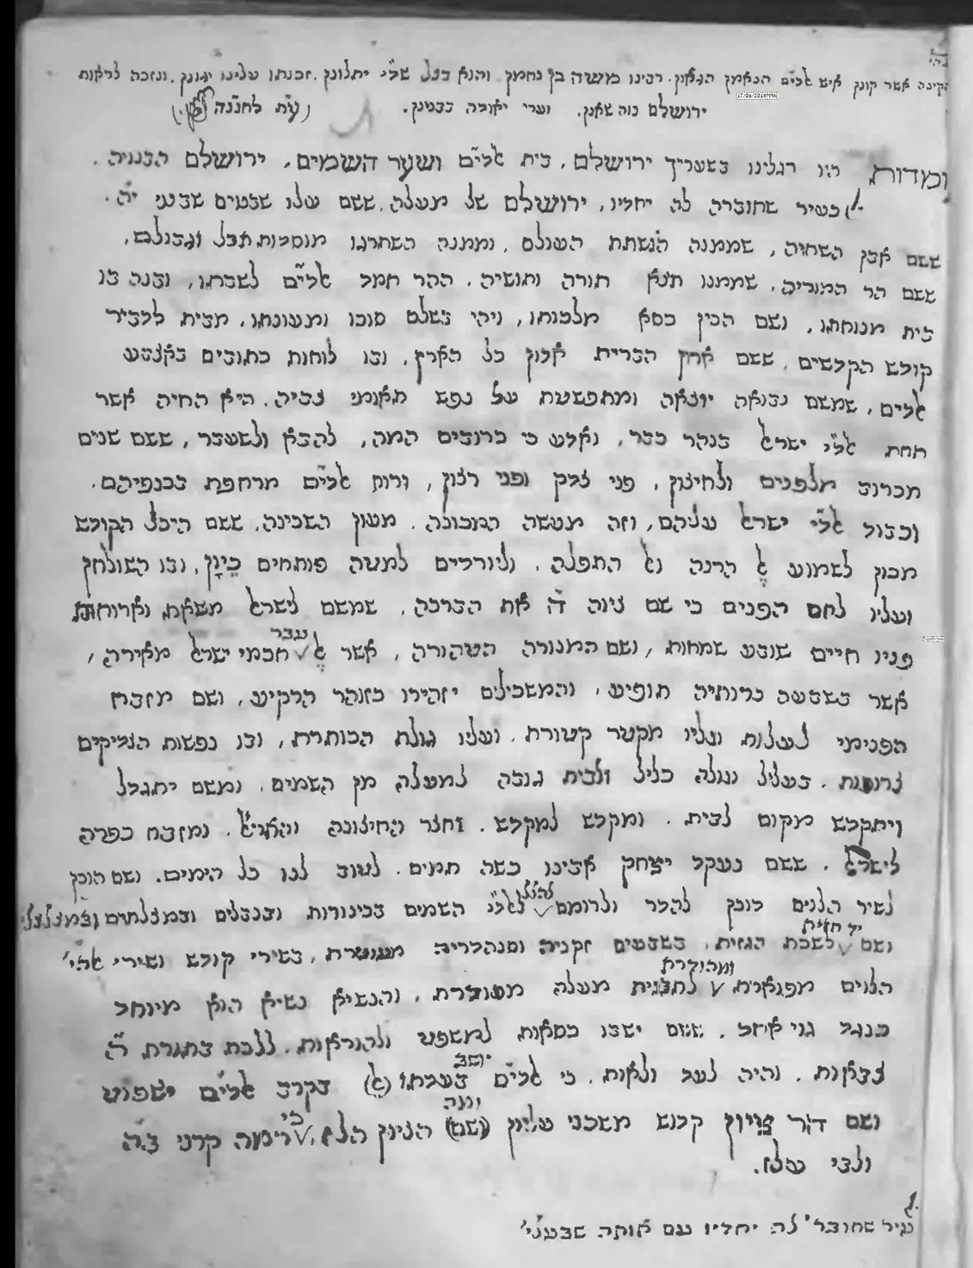 הקינה אשר קונן איש אלי"ם הנאמן הגאון רבינו משה בן נחמן והוא בכל שלי יתלונן. זכותו עלינו יגונן. ונזכה לראות
ירושלם נוה שאנן. וערי יאודה כבנינן. (עת לחננה)
ומדות, היו רגלינו בשעריך ירושלם, בית אלי"ם ושער השמים, ירושלם הבנויה.
כעיר שחוברה לה יחדיו, ירושלם של מעלה, ששם עלו שבטים שבטי יה.
ששם אבן השתיה, שממנה הושתת העולם, וממנה השתרגו מוסדות תבל וגבולם,
ששם הר המוריה, שממנו תצא תורה ותושיה. ההר חמד אלי"ם לשבתו, ובנה בו
בית מנוחתו, ושם הכין כסא מלכותו, ויהי בשלם סוכו ומעונתו, מבית לדביר
קודש הקדשים, ששם ארון הברית אדון כל הארץ, ובו לוחות כתובים באצבע
אלים, שמשם נבואה יוצאה ומתפשטת על נפש תאומי צביה. היא החיה אשר
תחת אלי ישראל בנהר כבר, ואדע כי כרובים המה, להבא ולשעבר, ששם שנים
מכרוב מלפנים ולחיצון, פני צדק ופני רצון, ורוח אלים מרחפת בכנפיהם.
וכבוד אלי ישראל עליהם, וזה מעשה המכונה. מעון השכינה, ששם היכל הקודש
מכון לשמוע אל הרנה ואל התפלה. וליורדים למטה פותחים כיון, ובו השולחן
ועליו לחם הפנים כי שם ציוה ה' את הברכה, שמשם לישראל משאת וארוחות
פניו חיים שובע שמחות, ושם המנורה הטהורה, אשר אל עבר חכמי ישראל מאירה,
אשר בשבעה נרותיה תופיע, והמשכילים יזהירו כזוהר הרקיע, ושם מזבח
הפנימי לעלות ועליו מקטר קטורת. ועליו גולת הכותרת, ובו נפשות הצדיקים
צרורות. בעליל ועולה כליל ולבית גנבה למעלה מן השמים, ומשם יתגדל
ויתקדש מקום לבית. ומקדש למקדש. וחצר החיצונה והאריאל. ומזבח כפרה
לישראל. ששם נעקד יצחק אבינו כשה תמים. לטוב לנו כל הימים. ושם הוכן
לשיר הלוים דוכן להדר ולרומם להלל לאלי השמים בכינורות ובנבלים ובמצלתים ובמצלצלי
ושם יד חזית לשכת הגזית, בשבטים זקניה וסנהדריה מעוטרת, בשירי קודש ושירי אהי'
הלוים מפוארת ומהודרת לתבנית מעלה מסודרת. והנשיא נשיא הוא מיוחד
כנגד גוי אחד. ששם ישבו כסאות למשפט ולהוראות. ללכת בתורת ה'
צבאות. והיה לעד ולאות. כי אלים יושב בעדתו (אל) בקרב אלים ישפוט
ושם דור ציון קדוש משכני עליון (שם) ועה הציון הלז, כי רימה קרני בה
ולבי עלז.
כעיר שחובר' לה יחדיו עם אותה שבעלי'